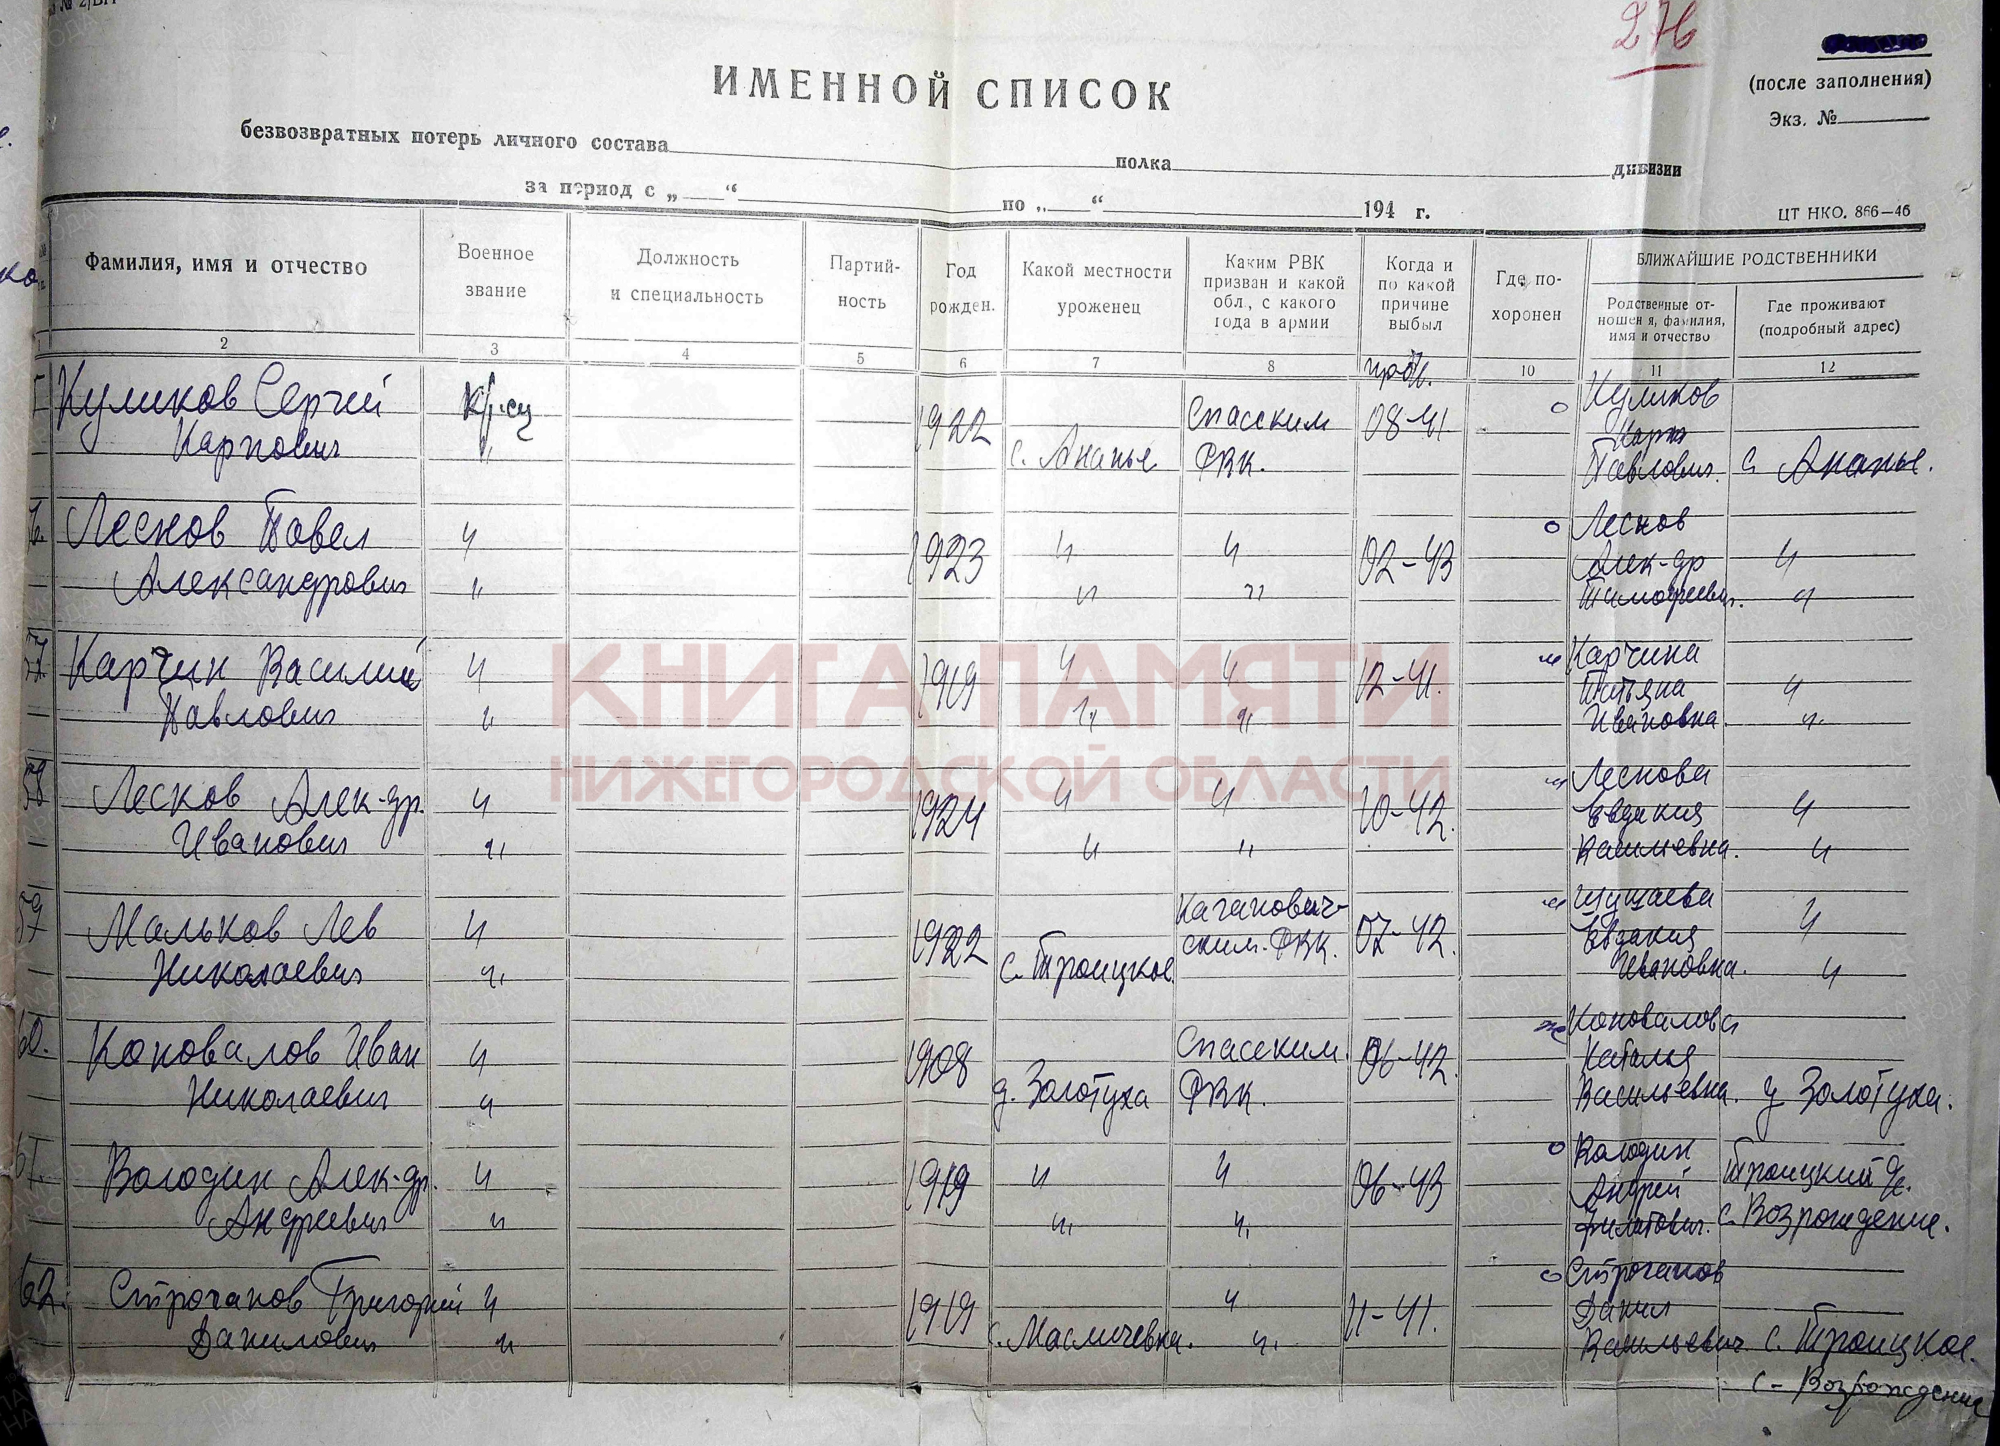 276
(после заполнения)
Экз. №
ИМЕННОЙ СПИСОК
безвозвратных потерь личного состава полка дивизии
за период с „ “ по „ “ 194 г.
ЦТ НКО. 866—46
Фамилия, имя и отчество
Военное звание
Должность и специальность
Партийность
Год рожден.
Какой местности уроженец
Каким РВК призван и какой обл., с какого года в армии
Когда и по какой причине выбыл
Где похоронен
БЛИЖАЙШИЕ РОДСТВЕННИКИ
Родственные отношения, фамилия, имя и отчество
Где проживают (подробный адрес)
2 3 4 5 6 7 8 10 11 12
Куликов Сергей Карпович кр-ец 1922 с. Ананье Спасским РВК. 08-41 о Куликов Карп Павлович. с Ананье.
Леснов Павел Александрович " " 1923 " " " " 02-43 о Леснов Алек-др Тимофеевич. " "
57 Карчин Василий Павлович " " 1919 " " " " 12-41. м Карчина Татьяна Ивановна. " "
58 Лесков Алек-др. Иванович " " 1924 " " " " 10-42. м Леснова Евдакия Васильевна. " "
59 Мальков Лев Николаевич " " 1922 с. Троицкое Кагановичским. РВК. 07-42. м Шушаева Евдакия Ивановна. " "
60. Коновалов Иван Николаевич " " 1908 д. Золотуха Спасским. РВК. 06-42. Коновалова Наталья Васильевна. Золотуха.
61. Володин Алек-др. Андреевич " " 1919 " " " " 06-43 о Володин Андрей Филатович. Троицкий с. Возрождение.
62. Строганов Григорий Данилович " " 1919 с. Масличевка. " " 11-41. о Строганов Данил Васильевич с. Троицкое.
с - Возрождение
КНИГА ПАМЯТИ
НИЖЕГОРОДСКОЙ ОБЛАСТИ